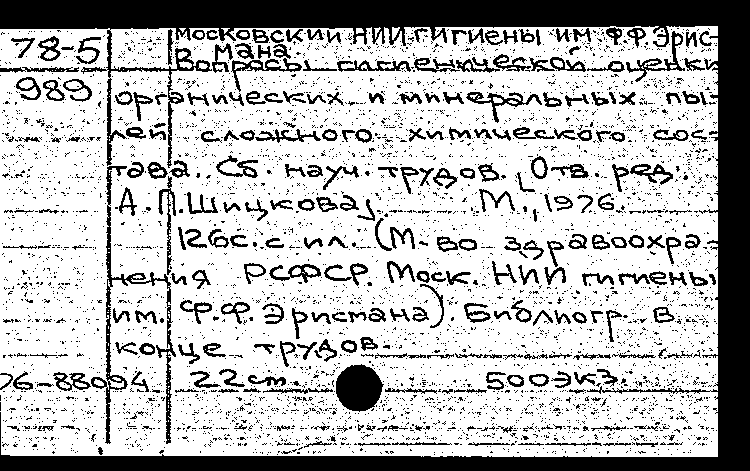 78-5 Московский НИИ гигиены им Ф.Ф.Эрис-
мана.
Вопросы гигиенической оценки
989 органических и минеральных пы-
лей сложного химического сос-
тава. Сб. науч. трудов. [Отв. ред.
А.П.Шицкова]. М., 1976.
126с. с ил. (М-во здравоохра-
нения РСФСР. Моск. НИИ гигиены
им. Ф.Ф. Эрисмана). Библиогр. в
конце трудов.
76-88094 22см. 500экз.